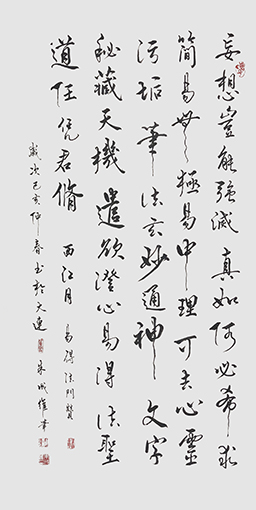 妄想豈能強滅真如何必希求
簡易極易中理可去心靈
污垢筆法玄妙通神文字
秘藏天機遣欲澄心易得法聖
道任憑君脩 西江月 易得法門贊
歲次己亥仲春書於大連 朱成